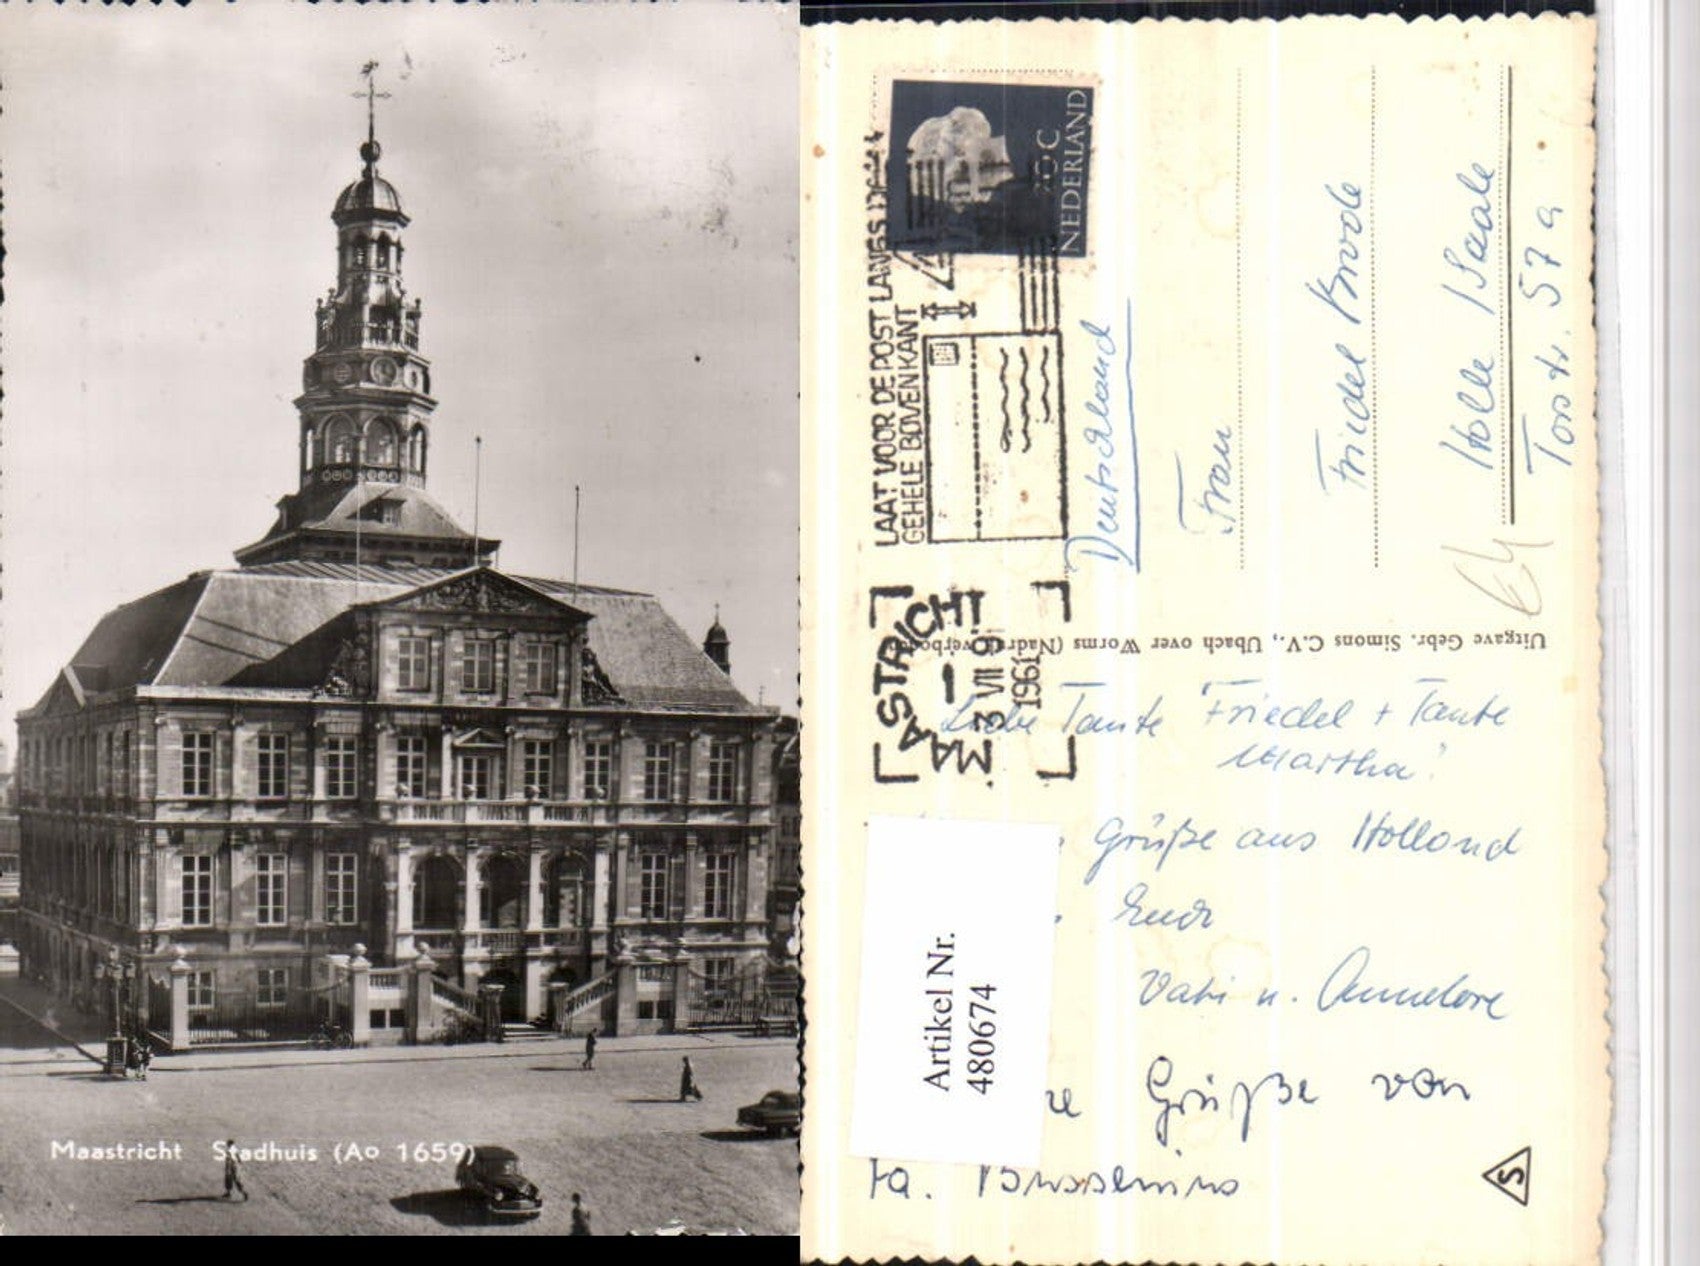 Maastricht Stadhuis (Ao 1659)
NEDERLAND
C
LAAT VOOR DE POST LANGS
GEHELE BOVENKANT
MAASTRICHT
3 VII 9
1961
Deutschland
Frau
Friedel
Halle /Saale
Torstr. 57a
Uitgave Gebr. Simons C.V., Ubach over Worms (Nadruk verboden)
Liebe Tante Friedel + Tante
Martha!
Grüße aus Holland
Euch
Vati u. Annelore
Grüße von
Fa.
Artikel Nr.
480674
S